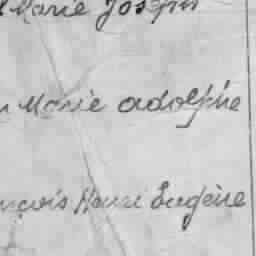 Marie Joseph
Marie adolphe
Henri Eugène